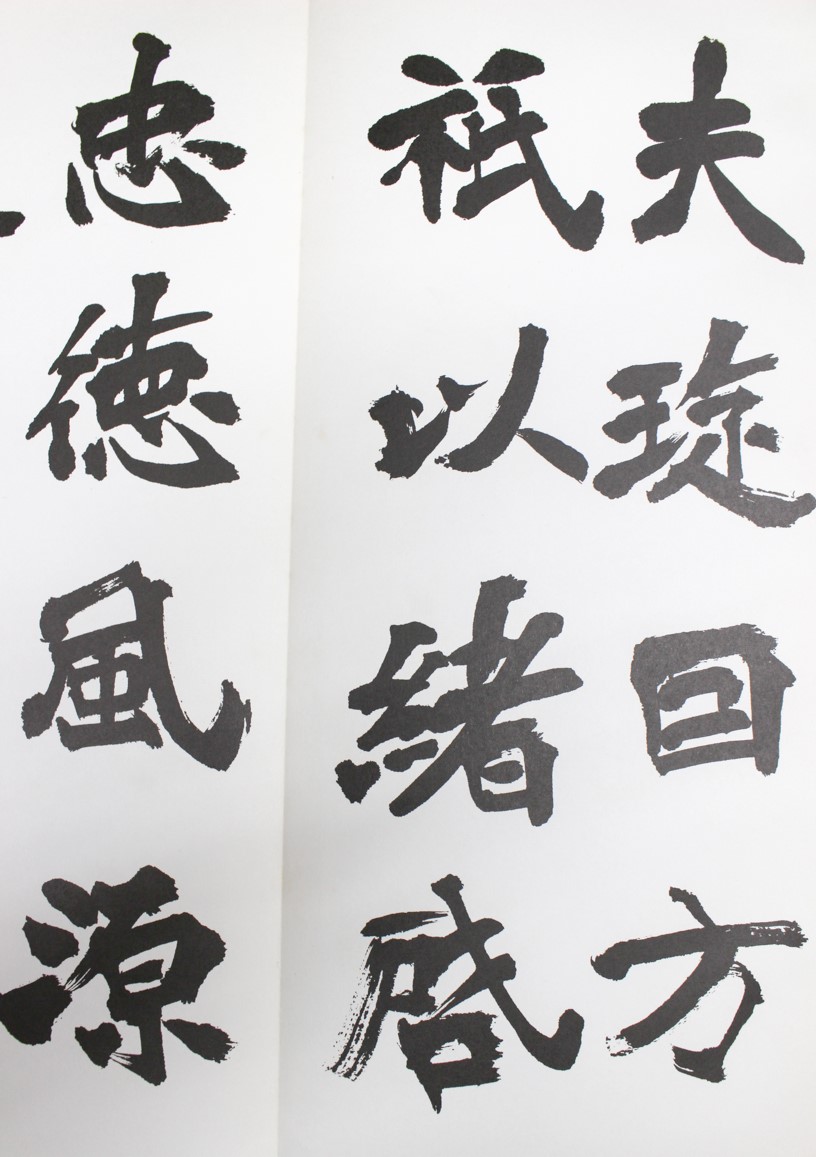 夫琁回方
祇以緒啓
忠徳風源